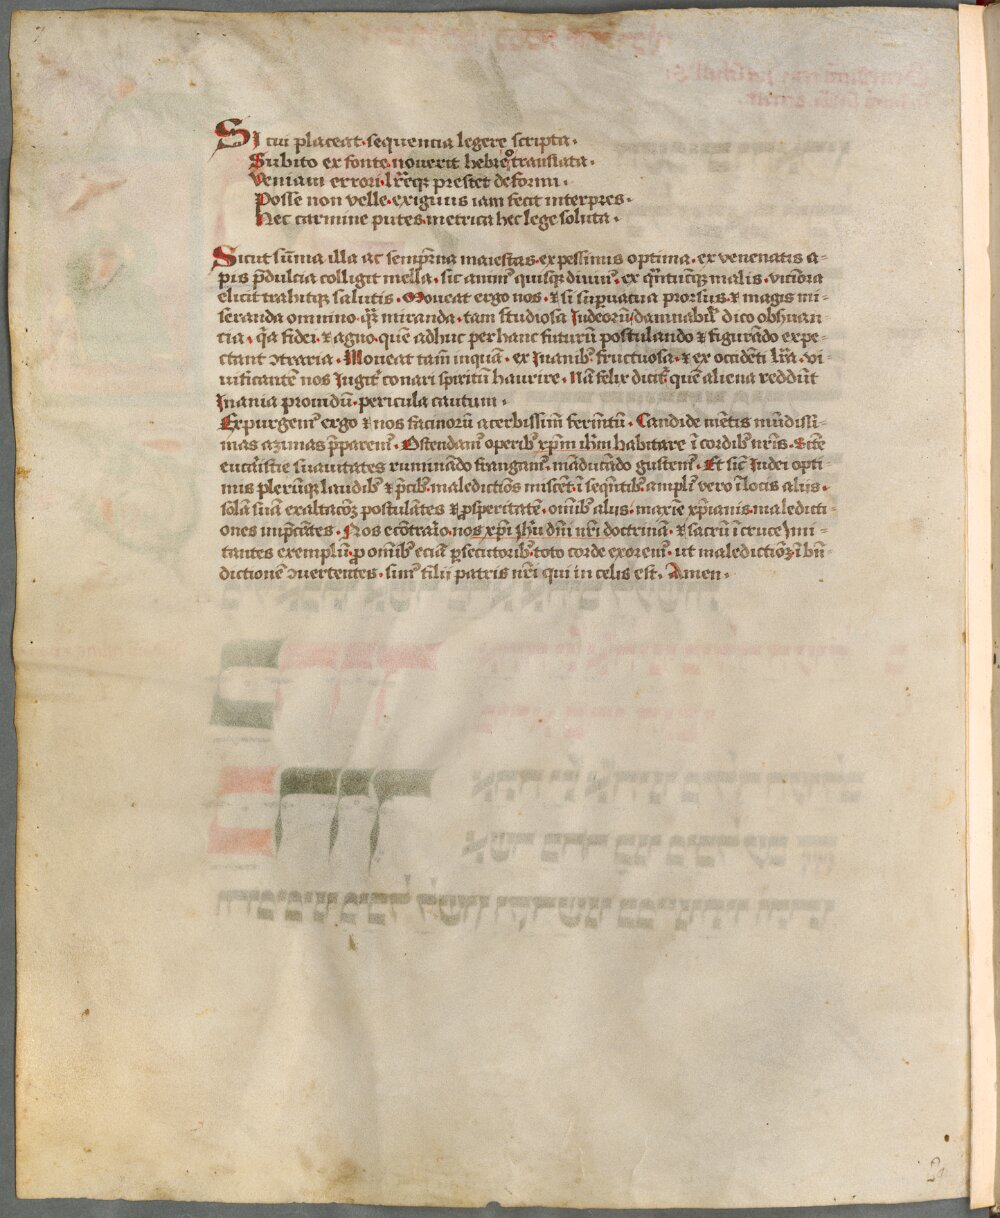 Si cui placeat sequencia legere scripta.
Subito ex fonte noverit hebreo translata.
Veniam errori lr̄eq; prestet deformi.
Posse non velle exiguus iam fecit interpres.
Nec carmine putes metrica hec lege soluta.
Sicut sūma illa ac sempīna maiestas ex pessimis optima. ex venenatis a-
pis p̄dulcia colligit mella. sic animꝰ quisq; divinꝰ ex q̄ntūcūq; malis. viciora
elicit trahitq; salutis. Moveat ergo nos. ⁊ si supvacua prorsus ⁊ magis mi-
seranda omnino q̄ꝫ miranda. tam studiosa Judeorū dāmnabilꝰ dico obs̄uan-
cia. q̄a fidei ⁊ agno. quē adhuc per hanc futurū postulando ⁊ figurādo expe-
ctant ↄtraria. Moveat tam̄ inquā. ex Inanibꝰ fructuosa. ⁊ ex occidēti lr̄a. vi-
vificantē nos Jugit̉ conari spiritū haurire. Nā felix dicit̉ quē aliena reddūt
Inania providū. pericula cautum.
Expurgemꝰ ergo ⁊ nos facinorū acerbissimū fermtū. Candide mētis mūdissi-
mas azimas p̄paremꝰ. Ostendamꝰ operibꝰ xp̄m ih̄m habitare ī cordibꝰ nr̄is.
eucaristie suavitates ruminādo frangamꝰ. māducādo gustemꝰ. Et sic̄ Judei opti-
mis plerūq; laudibꝰ ⁊ p̄cibꝰ maledictiōs miscēt. ī seq̄ntibꝰ ampliꝰ vero ī locis aliis.
solā suā exaltacōꝫ postulātes ⁊ ꝓsperitatē. oībꝰ aliis. maxīe xp̄ianis maledicti-
ones imp̄cātes. Nos ecōtra̓io. nos xp̄i Jh̄u dn̄i nr̄i doctrinā. ⁊ sacrū ī cruce Imi-
tantes exemplū. ꝓ omībꝰ eciā ꝑsecutoribꝰ. toto corde exoremꝰ. ut maledictiōꝫ ī bn̄-
dictionē ↄvertentes. simꝰ filii patris nr̄i qui in celis est. Amen.
2